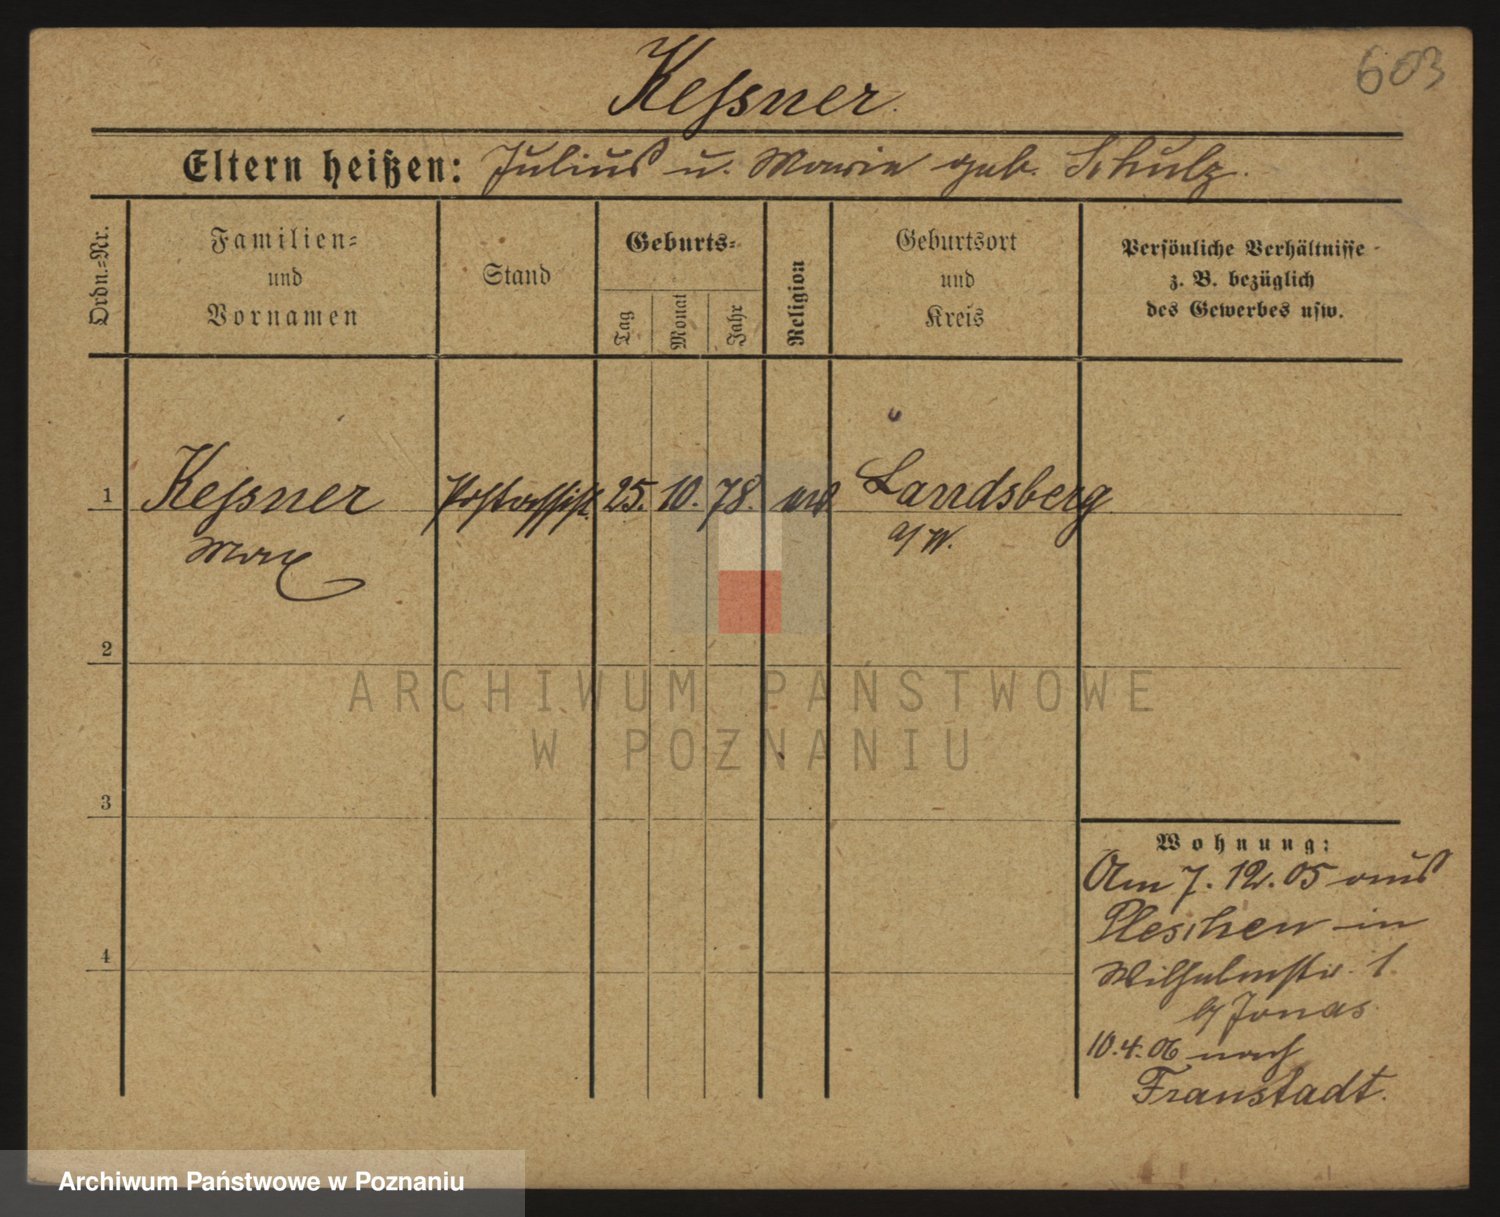 603
Keſsner
Eltern heißen: Julius u. Marie geb. Schulz.
Ordn.-Nr.
Familien-
und
Vornamen
Stand
Geburts-
Tag
Monat
Jahr
Religion
Geburtsort
und
Kreis
Persönliche Verhältnisse
z. B. bezüglich
des Gewerbes usw.
1 Keſsner Postassist. 25. 10. 78. Landsberg
Max a/W.
2
3
4
Wohnung:
Am 7. 12. 05 aus
Pleschen in
Wilhelmstr. 1.
b/ Jonas.
10.4.06 nach
Fraustadt.
ARCHIWUM PAŃSTWOWE
W POZNANIU
Archiwum Państwowe w Poznaniu